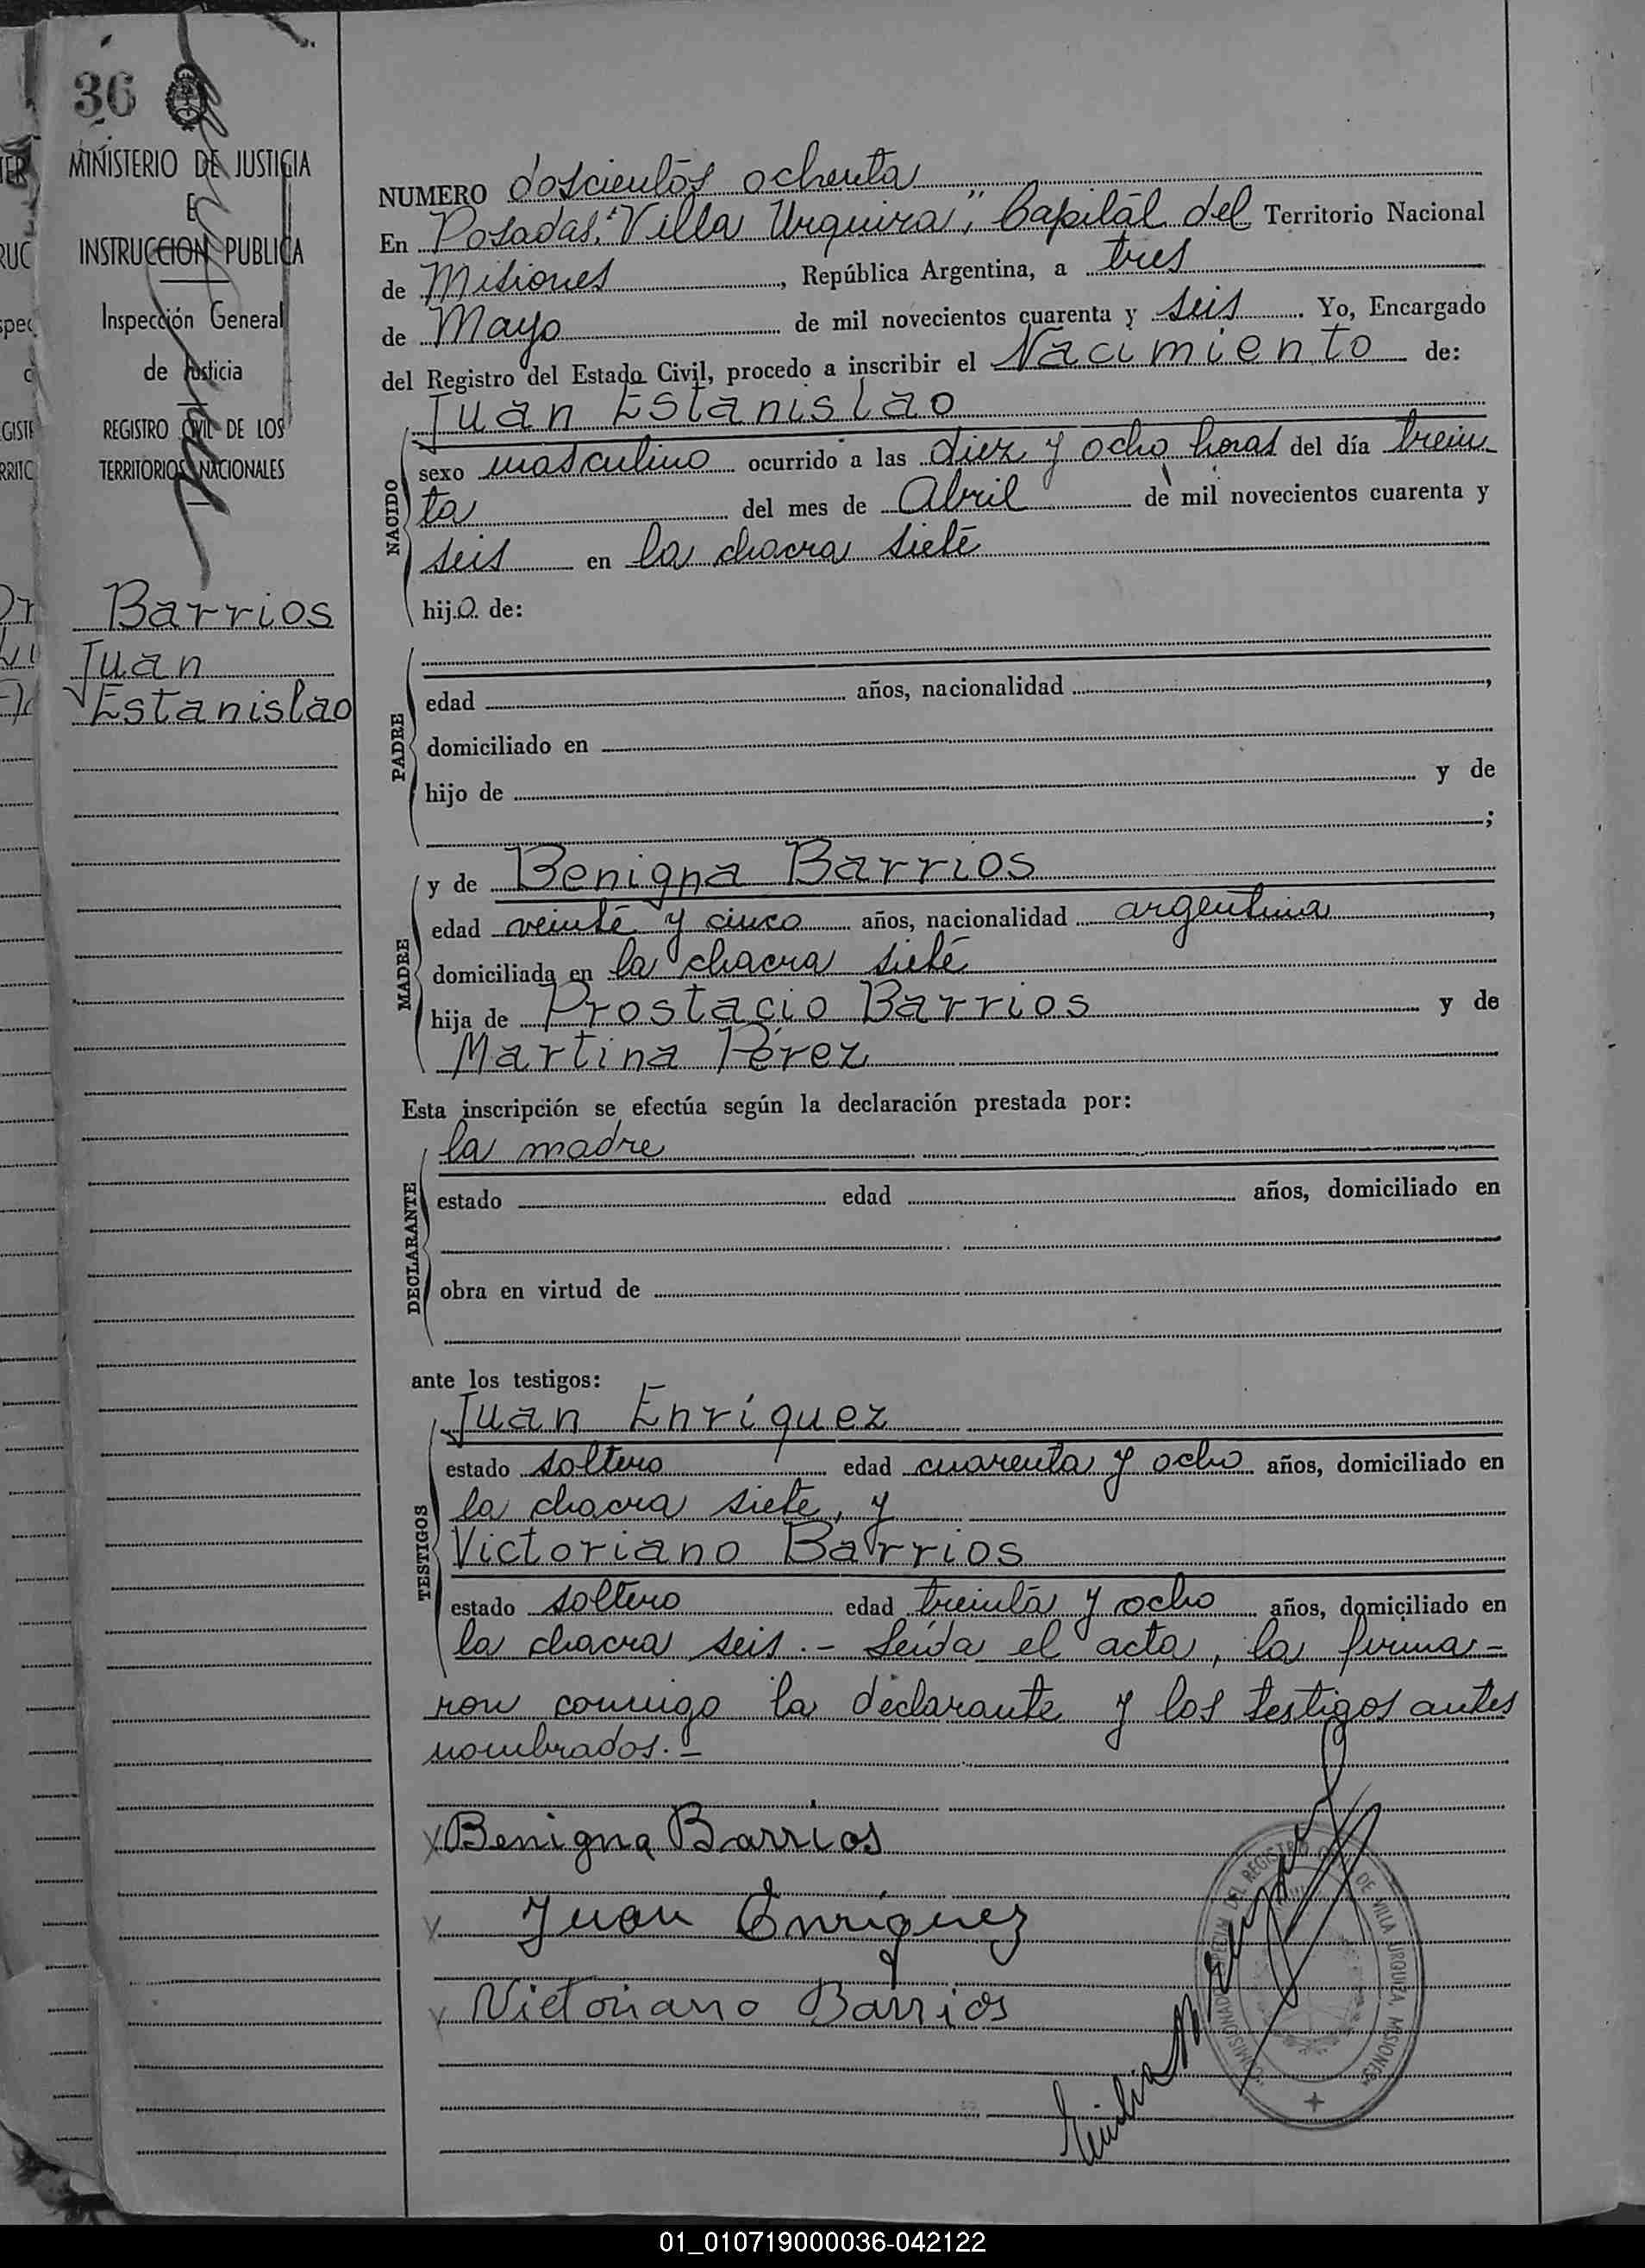 36
MINISTERIO DE JUSTICIA
E
INSTRUCCION PUBLICA
Inspección General
de Justicia
REGISTRO CIVIL DE LOS
TERRITORIOS NACIONALES
Barrios
Juan
Estanislao
NUMERO doscientos ochenta
En Posadas, "Villa Urquiza", Capital del Territorio Nacional
de Misiones, República Argentina, a tres
de Mayo de mil novecientos cuarenta y seis. Yo, Encargado
del Registro del Estado Civil, procedo a inscribir el Nacimiento de:
NACIDO
Juan Estanislao
sexo masculino ocurrido a las diez y ocho horas del día trein
ta del mes de Abril de mil novecientos cuarenta y
seis en la chacra siete
hijo de:
PADRE
edad años, nacionalidad ,
domiciliado en
hijo de y de
;
MADRE
y de Benigna Barrios
edad veinte y cinco años, nacionalidad argentina,
domiciliada en la chacra siete
hija de Prostacio Barrios y de
Martina Pérez
Esta inscripción se efectúa según la declaración prestada por:
DECLARANTE
la madre
estado edad años, domiciliado en
obra en virtud de
ante los testigos:
TESTIGOS
Juan Enríquez
estado soltero edad cuarenta y ocho años, domiciliado en
la chacra siete, y
Victoriano Barrios
estado soltero edad treinta y ocho años, domiciliado en
la chacra seis.- Leída el acta, la firma-
ron conmigo la declarante y los testigos antes
nombrados.-
Benigna Barrios
Juan Enriquez
Victoriano Barrios
DEL REGISTRO DE VILLA URQUIZA, MISIONES
01_010719000036-042122